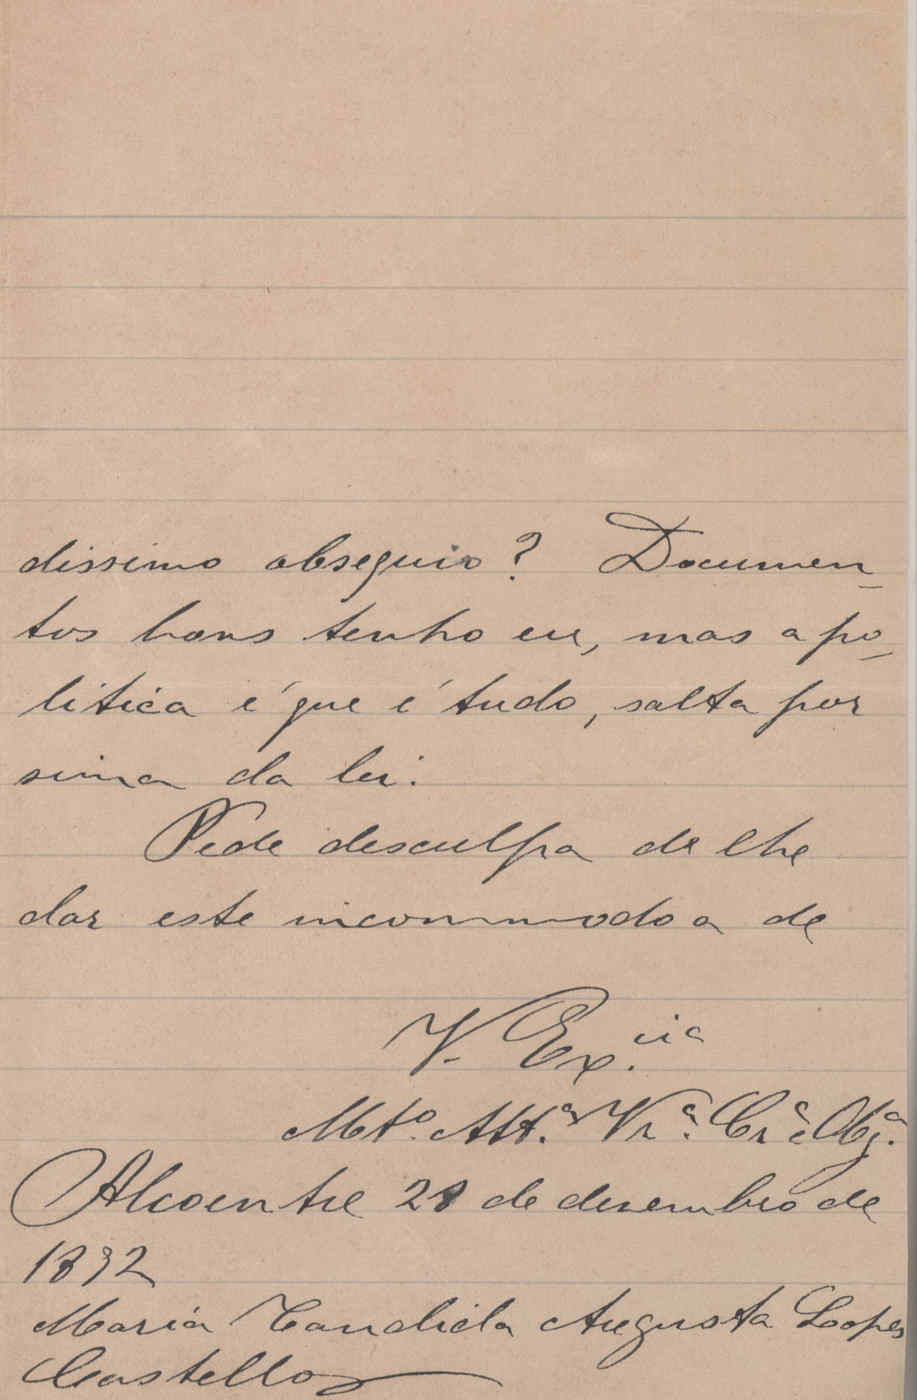 dissimo obsequio? Documen-
tos bons tenho eu, mas a po-
litica é que é tudo, salta por
sima da lei.
Pede desculpa de lhe
dar este incommodo a de
V. Ex.cia
Mto. Att.a Vr.a Cr.a e Obg.a
Alcoentre 28 de desembro de
1892
Maria Candida Augusta Loopes
Castello